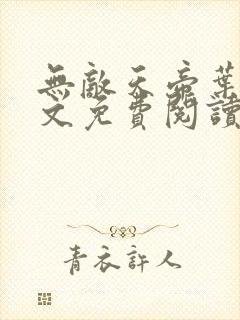 無敵天帝葉
文免費閱讀
青衣許人